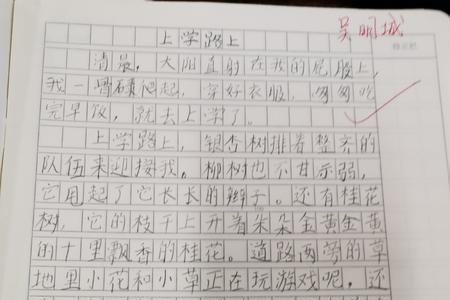 吴明城
上学路上
清晨，太阳直射在我的屁股上，
我一骨碌爬起，穿好衣服，匆匆吃
完早饭，就去上学了。
上学路上，银杏树排着整齐的
队伍来迎接我。柳树也不甘示弱，
它甩起了它长长的辫子。还有桂花
树，它的枝干上开着朵朵金黄金黄
的十里飘香的桂花。道路两旁的草
地里小花和小草正在玩游戏呢，还